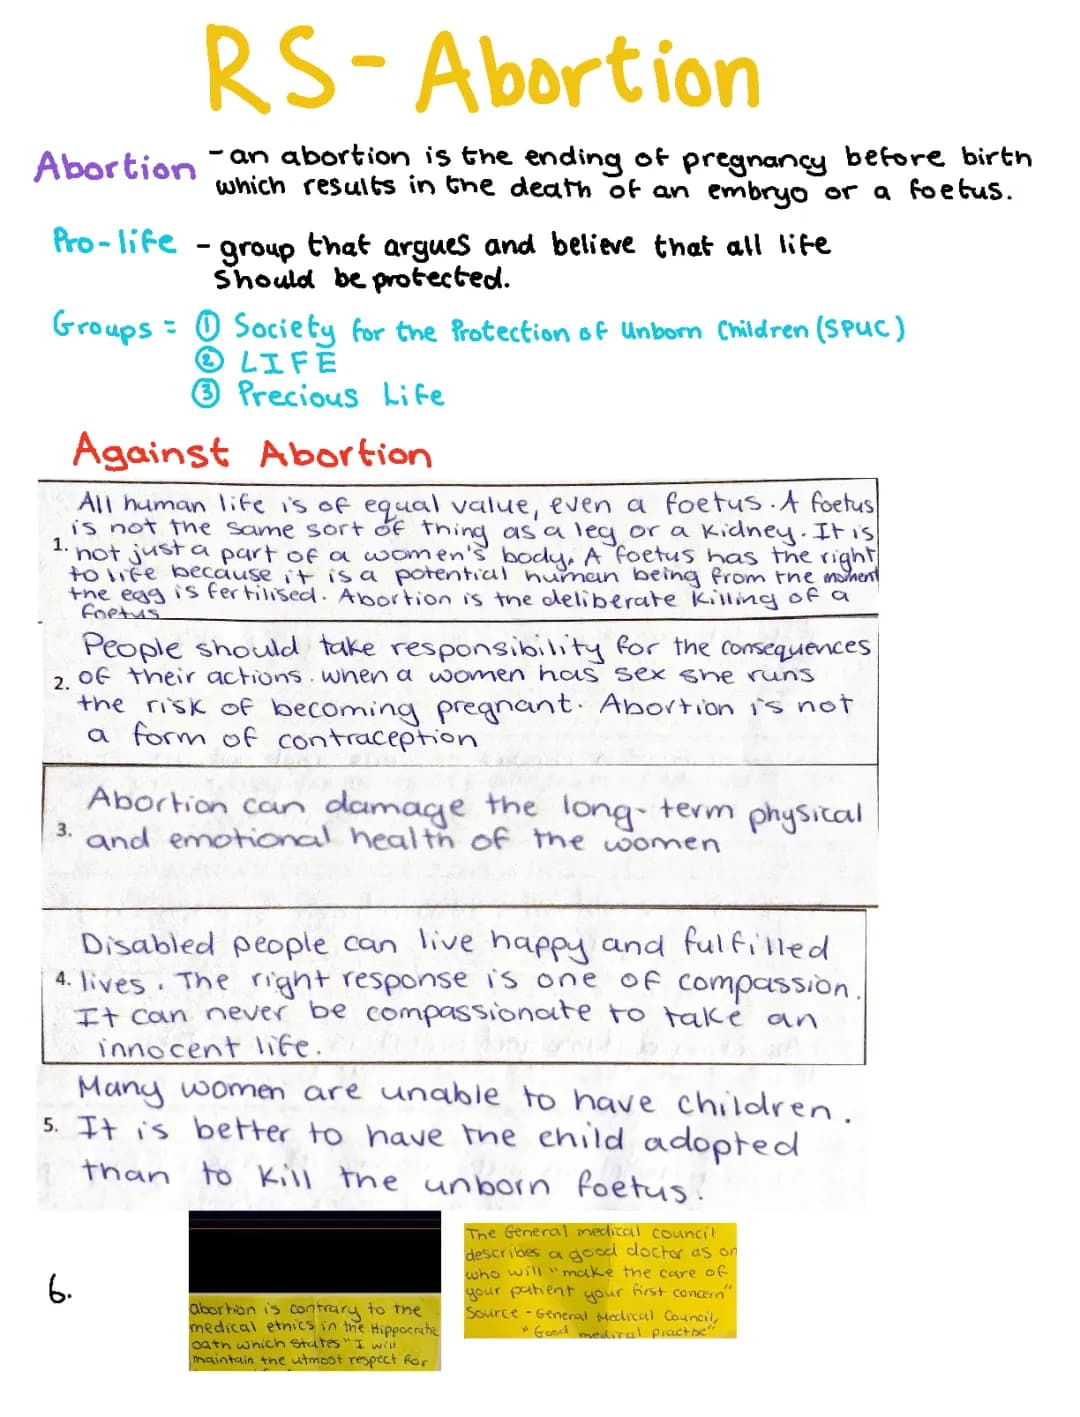 RS - Abortion
Abortion - an abortion is the ending of pregnancy before birth
which results in the death of an embryo or a foetus.
Pro-life - group that argues and believe that all life
should be protected.
Groups = ① Society for the Protection of Unborn Children (SPUC)
② LIFE
③ Precious Life
Against Abortion
All human life is of equal value, even a foetus. A foetus
is not the same sort of thing as a leg or a kidney. It is
1. not just a part of a women's body. A foetus has the right
to life because it is a potential human being from the moment
the egg is fertilised. Abortion is the deliberate killing of a
foetus
People should take responsibility for the consequences
2. of their actions. when a women has sex she runs
the risk of becoming pregnant. Abortion is not
a form of contraception
Abortion can damage the long-term physical
3. and emotional health of the women
Disabled people can live happy and fulfilled
4. lives. The right response is one of compassion.
It can never be compassionate to take an
innocent life.
Many women are unable to have children.
5. It is better to have the child adopted
than to kill the unborn foetus.
6.
abortion is contrary to the
medical ethics in the Hippocratic
oath which states "I will
maintain the utmost respect for
The General medical council
describes a good doctor as on
who will "make the care of
your patient your first concern"
Source - General Medical Council,
"Good medical practise"